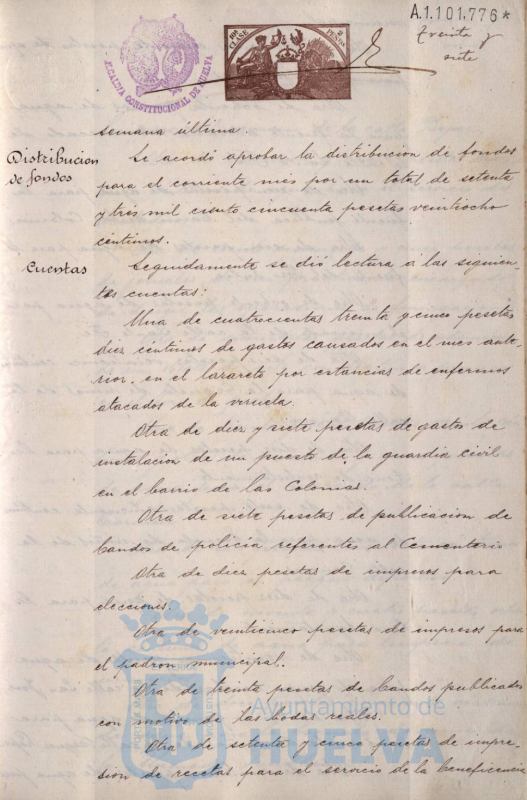 A.1.101.776*
Treinta y
siete
ALCALDIA CONSTITUCIONAL DE HUELVA
10ª CLASE
2 PESETAS
semana última.
Distribucion
de fondos
Se acordó aprobar la distribucion de fondos
para el corriente mes por un total de setenta
y tres mil ciento cincuenta pesetas veintiocho
céntimos.
Cuentas
Seguidamente se dió lectura á las siguien-
tes cuentas:
Una de cuatrocientas treinta y cinco pesetas
diez céntimos de gastos causados en el mes ante-
rior en el lazareto por estancias de enfermos
atacados de la viruela.
Otra de diez y siete pesetas de gastos de
instalacion de un puesto de la guardia civil
en el barrio de las Colonias.
Otra de siete pesetas de publicacion de
bandos de policía referentes al Cementerio
Otra de diez pesetas de impresos para
elecciones.
Otra de veinticinco pesetas de impresos para
el padron municipal.
Otra de treinta pesetas de bandos publicados
con motivo de las bodas reales.
Otra de setenta y cinco pesetas de impre-
sion de recetas para el servicio de la beneficencia
Ayuntamiento de
HUELVA